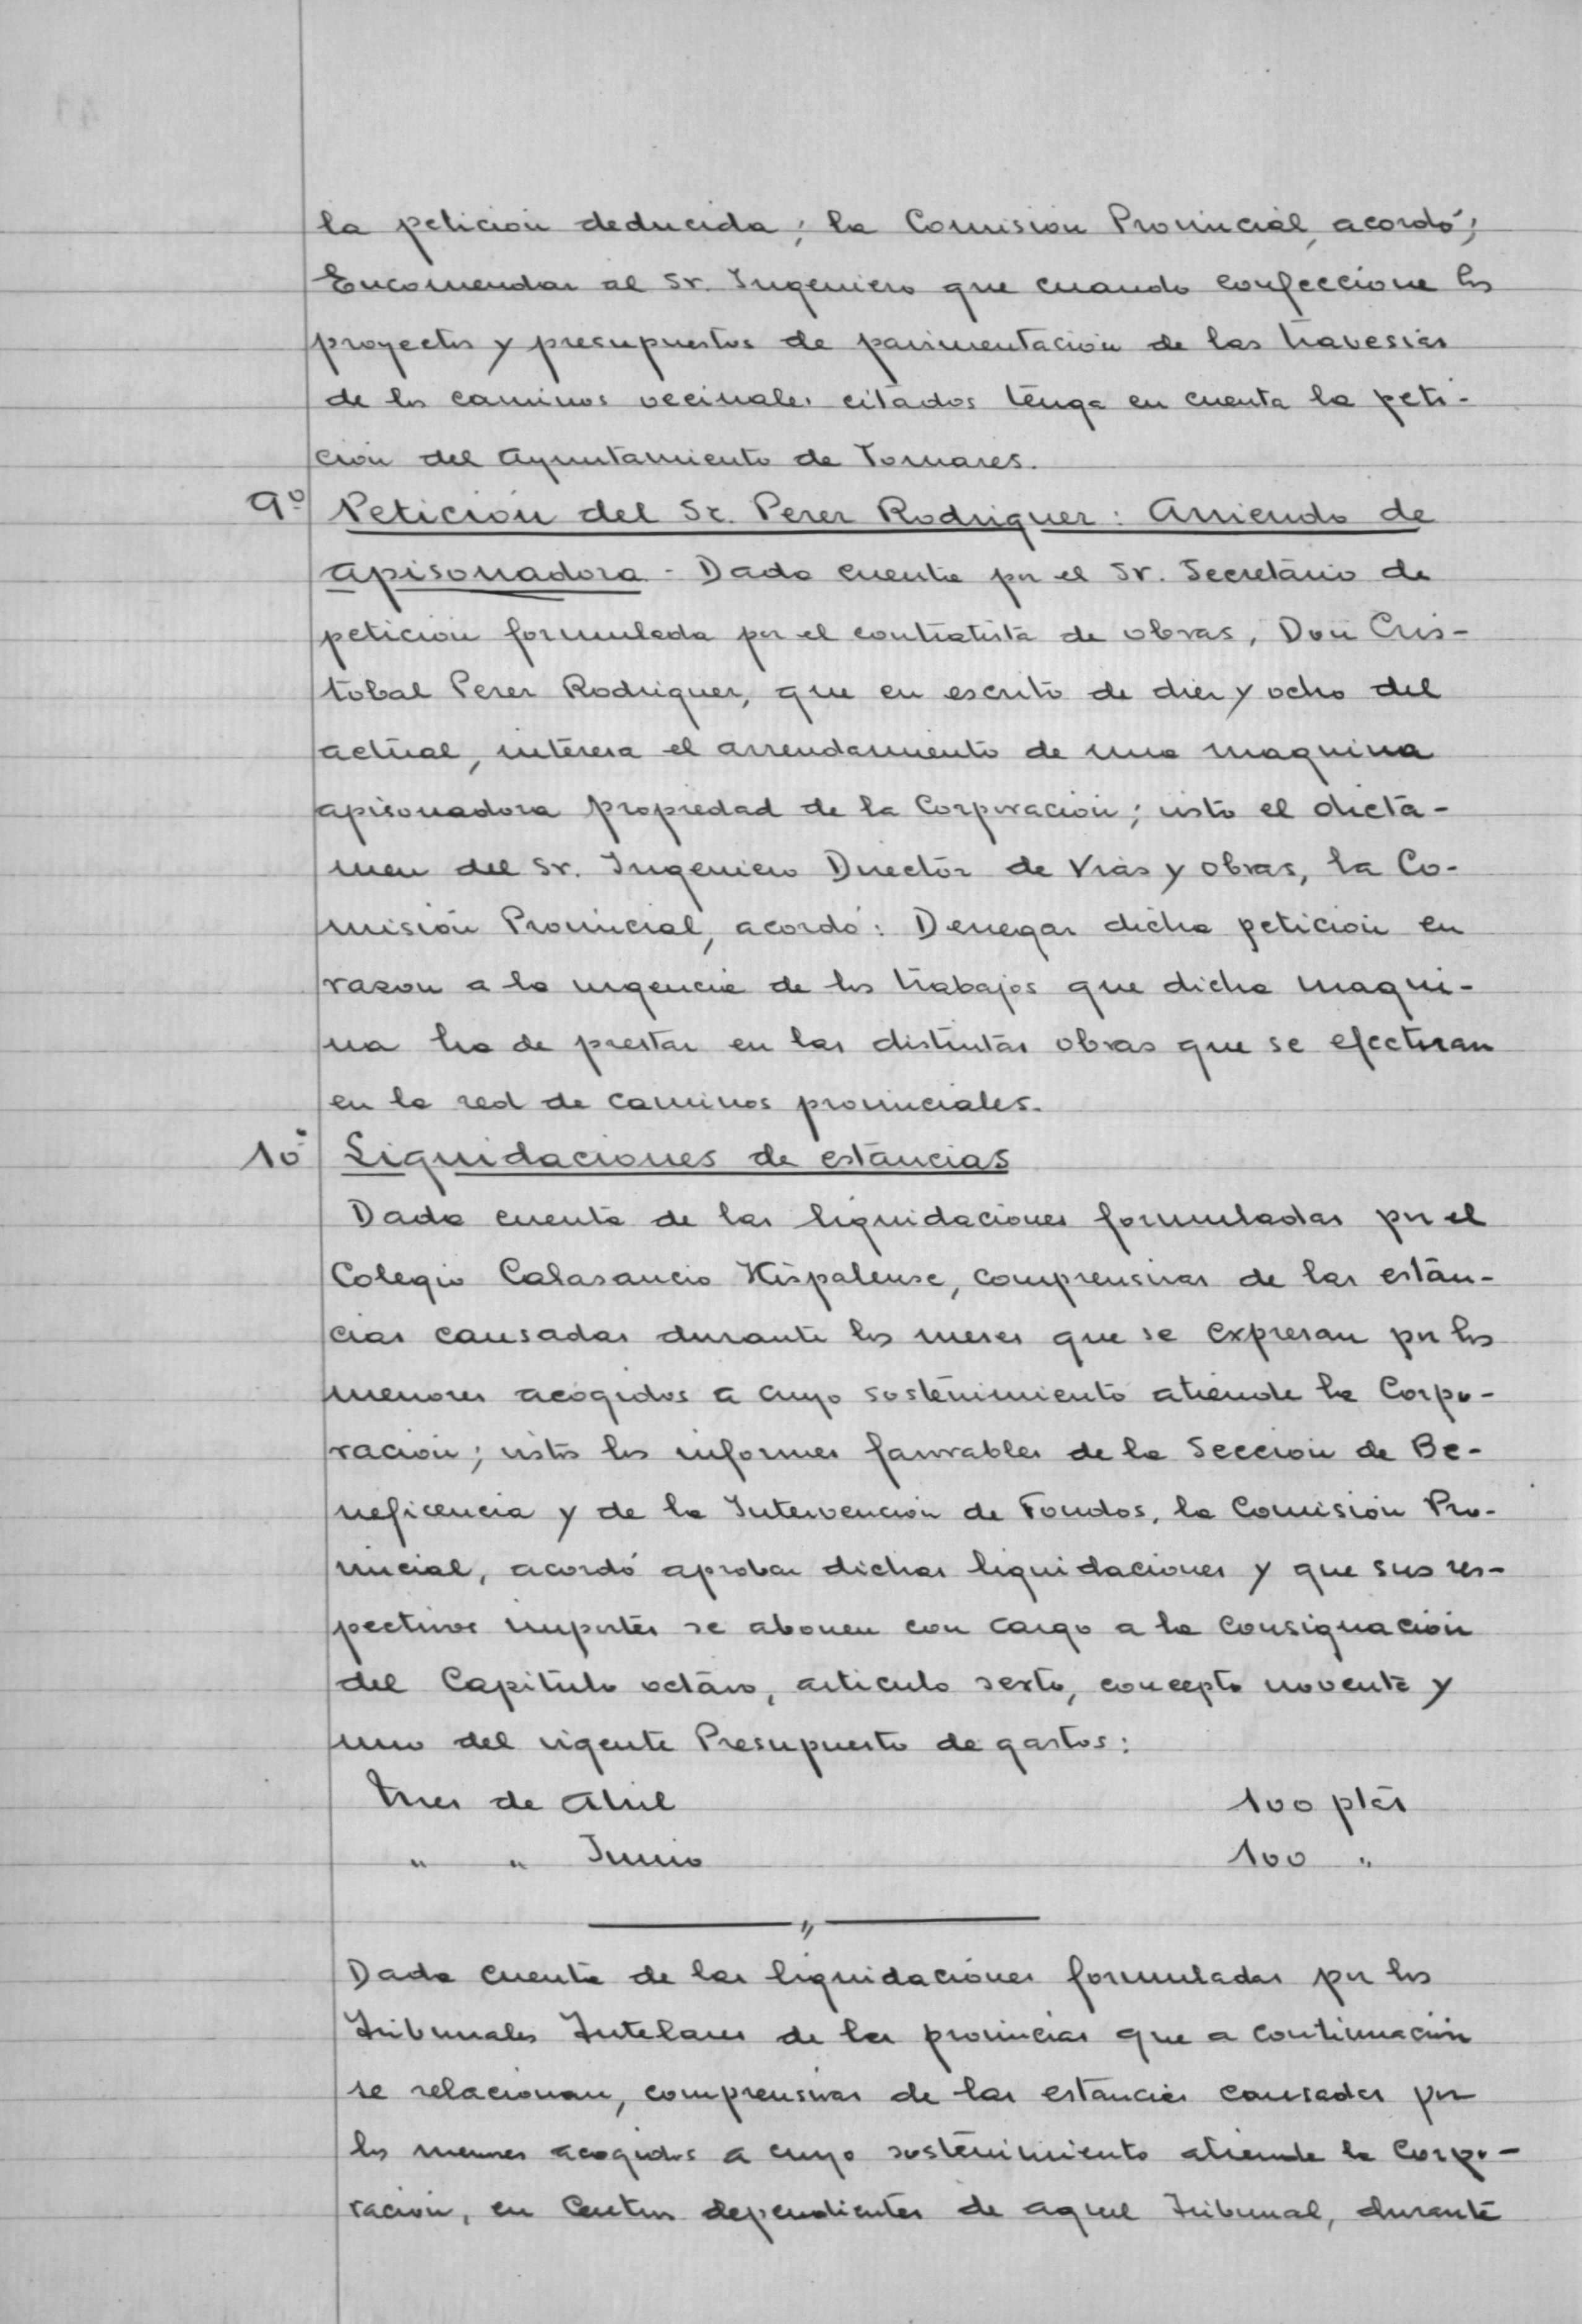 la petición deducida; la Comisión Provincial, acordó;
Encomendar al Sr. Ingeniero que cuando confeccione los
proyectos y presupuestos de pavimentación de las travesías
de los caminos vecinales citados tenga en cuenta la peti-
ción del Ayuntamiento de Tomares.
9º Petición del Sr. Perez Rodriguez: Arriendo de
apisonadora - Dada cuenta por el Sr. Secretario de
petición formulada por el contratista de obras, Don Cris-
tobal Perez Rodriguez, que en escrito de diez y ocho del
actual, interesa el arrendamiento de una maquina
apisonadora propiedad de la Corporación; visto el dicta-
men del Sr. Ingeniero Director de Vias y Obras, la Co-
misión Provincial, acordó: Denegar dicha petición en
razon a la urgencia de los trabajos que dicha maqui-
na ha de prestar en las distintas obras que se efectuan
en la red de caminos provinciales.
10º Liquidaciones de estancias
Dada cuenta de las liquidaciones formuladas por el
Colegio Calasancio Hispalense, comprensivas de las estan-
cias causadas durante los meses que se expresan por los
menores acogidos a cuyo sostenimiento atiende la Corpo-
ración; vistos los informes favorables de la Sección de Be-
neficencia y de la Intervención de Fondos, la Comisión Pro-
vincial, acordó aprobar dichas liquidaciones y que sus res-
pectivos importes se abonen con cargo a la consignación
del Capitulo octavo, articulo sexto, concepto noventa y
uno del vigente Presupuesto de gastos:
Mes de Abril 100 ptas
" " Junio 100 "
"
Dada cuenta de las liquidaciones formuladas por los
Tribunales Tutelares de las provincias que a continuación
se relacionan, comprensivas de las estancias causadas por
los menores acogidos a cuyo sostenimiento atiende la Corpo-
ración, en Centros dependientes de aquel Tribunal, durante